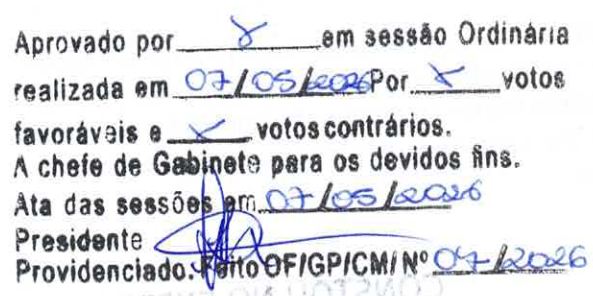 Aprovado por X em sessão Ordinária
realizada em 07/05/2026 Por X votos
favoráveis e X votos contrários.
A chefe de Gabinete para os devidos fins.
Ata das sessões em 07/05/2026
Presidente
Providenciado. Feito OF/GP/CM/ Nº 07/2026